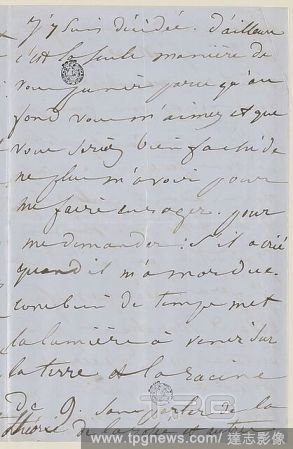 J'y suis décidée. d'ailleurs
c'est la seule manière de
vous punir parce qu'au
fond vous m'aimez et que
vous seriez bien faché de
ne plus m'avoir pour
me faire enrager. pour
me demander : S'il a crié
quand il m'a mordue.
combien de temps met
la lumière à venir sur
la terre et la racine
De 9. sans parler de la
théorie de la
www.tpgnews.com / 達志影像